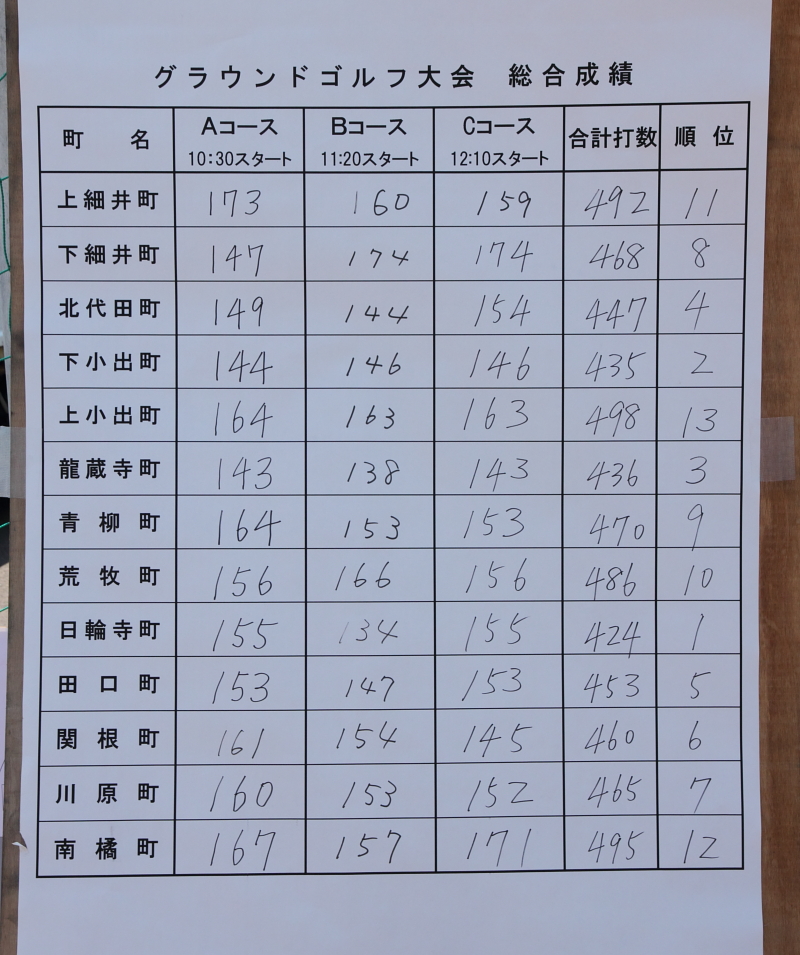 グラウンドゴルフ大会 総合成績
町名 Aコース 10:30スタート Bコース 11:20スタート Cコース 12:10スタート 合計打数 順位
上細井町 173 160 159 492 11
下細井町 147 174 174 468 8
北代田町 149 144 154 447 4
下小出町 144 146 146 435 2
上小出町 164 163 163 498 13
龍蔵寺町 143 138 143 436 3
青柳町 164 153 153 470 9
荒牧町 156 166 156 486 10
日輪寺町 155 134 155 424 1
田口町 153 147 153 453 5
関根町 161 154 145 460 6
川原町 160 153 152 465 7
南橘町 167 157 171 495 12